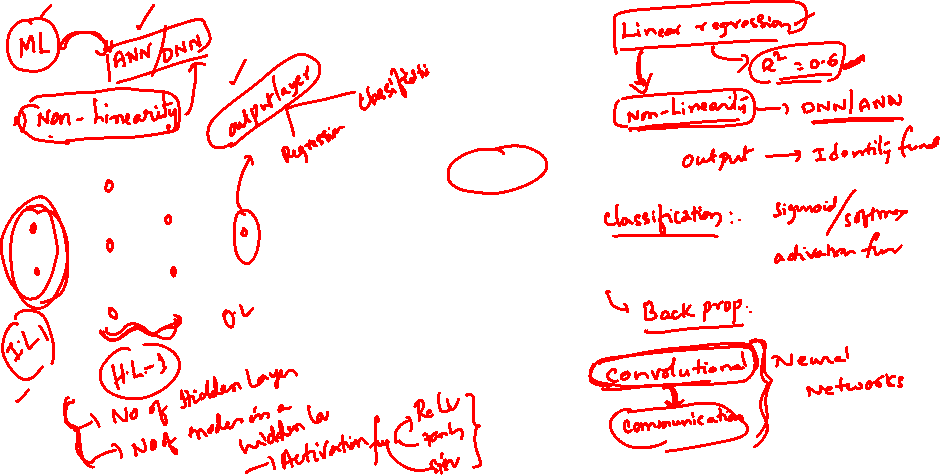 ML
ANN/DNN
Non-Linearity
output layer
classificati
Regression
I.L
H.L-1
O.L
No of Hidden Layer
No of nodes in a
hidden la
Activation fun
ReLU
tanh
Linear regression
R² = 0.6
Non-Linearity → DNN/ANN
output → Identity func
Classification:.
sigmoid/softmax
activation fun
Back prop.
Convolutional
Communication
Neural
Networks